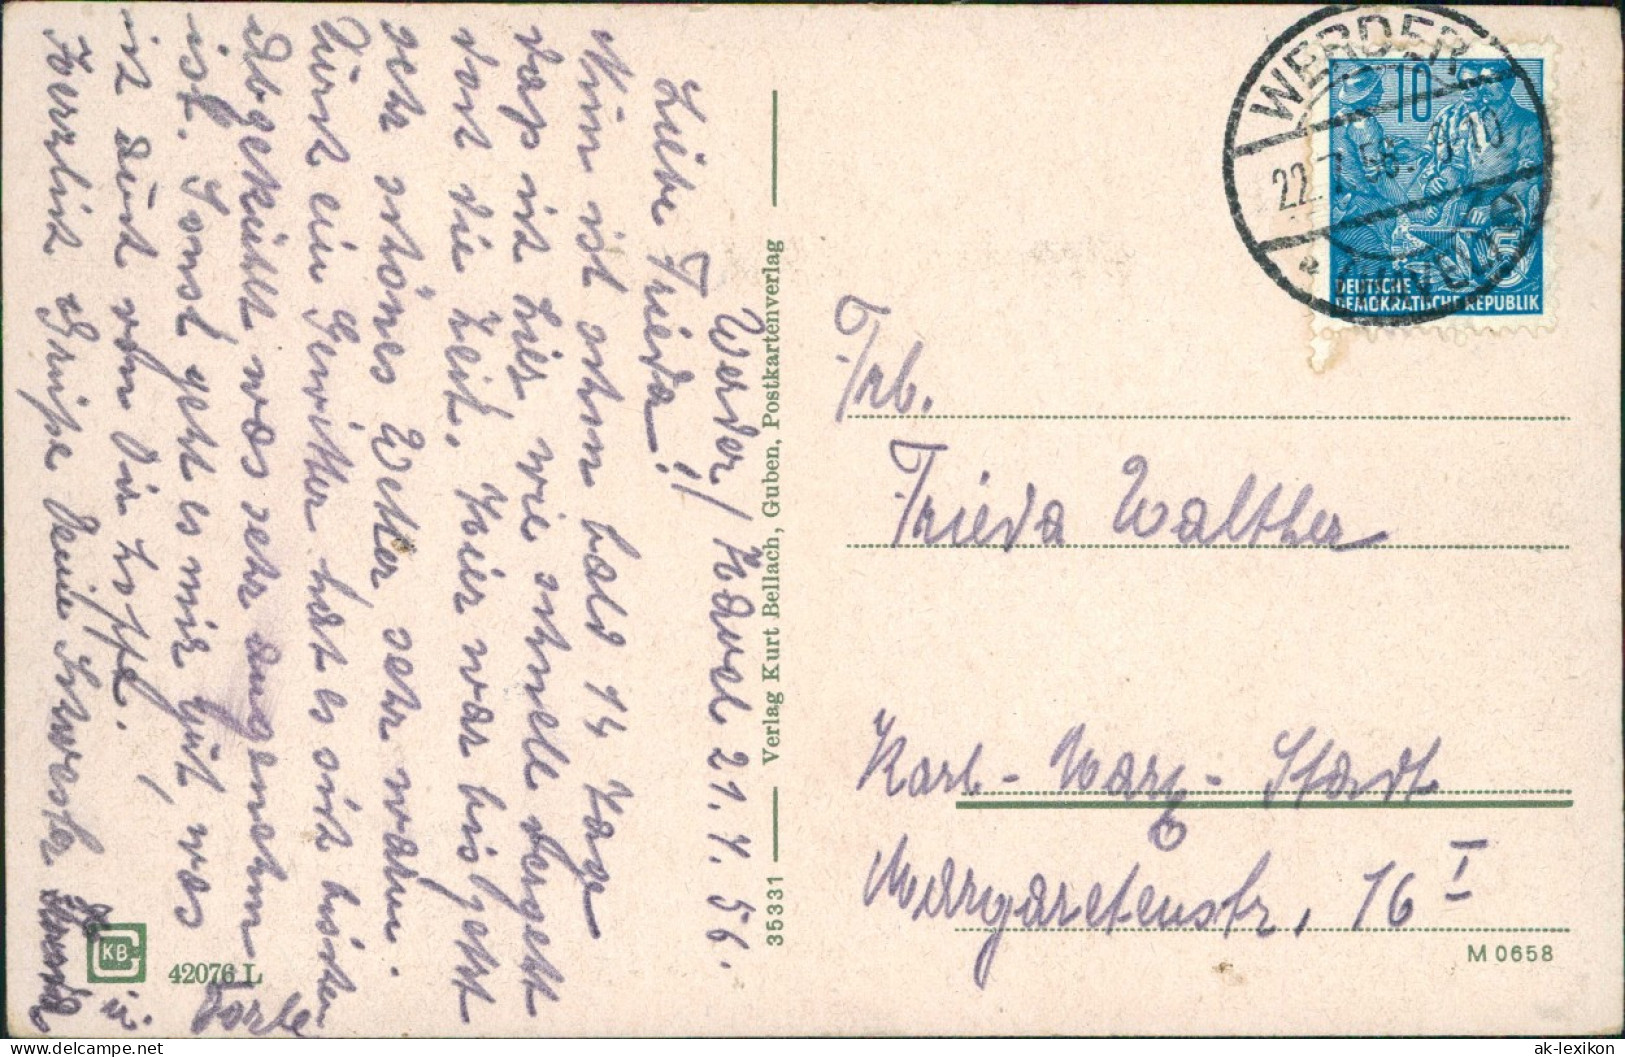 Werder/Havel 21.7.56.
Liebe Frieda!
Nun ist schon bald 14 Tage
das ich hier, wie schnell vergeht
doch die Zeit. Hier war bis jetzt
sehr schönes Wetter sehr warm.
durch ein Gewitter hat es sich bisschen
abgekühlt was sehr angenehm
ist. Sonst geht es mir gut, was
ich auch von Dir hoffe.
Herzlich Grüße Deine Schwester
Verlag Kurt Bellach, Guben, Postkartenverlag
35331
KB
42076 L
WERDER
22.7.56. 9-10
(HAVEL)
10
5
DEUTSCHE
DEMOKRATISCHE REPUBLIK
Frl.
Frieda Walther
Karl-Marx-Stadt
Margaretenstr. 16 I
M 0658
Copyright by AKPool.de
ak-lexikon